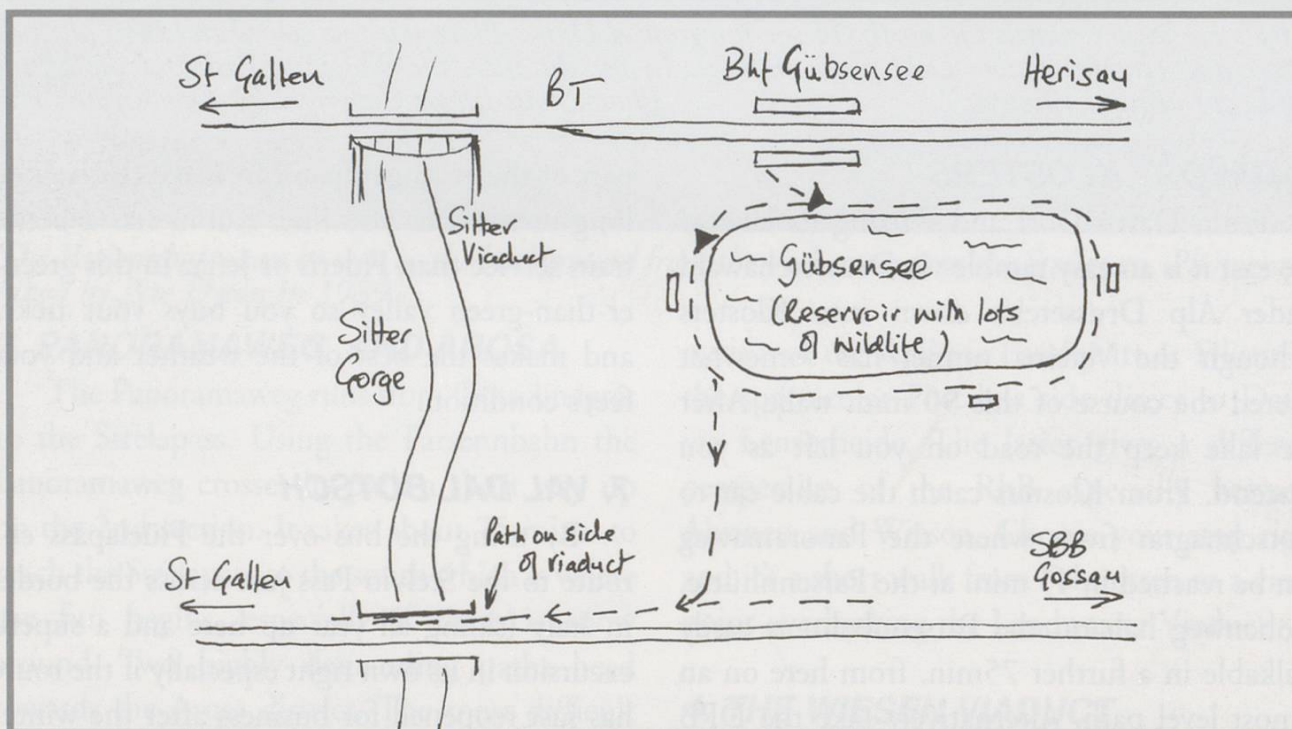 St Gallen
BT
Bhf Gübsensee
Herisau
Sitter
Viaduct
Gübsensee
(Reservoir with lots
of wildlife)
Sitter
Gorge
Path on side
of viaduct
St Gallen
SBB
Gossau